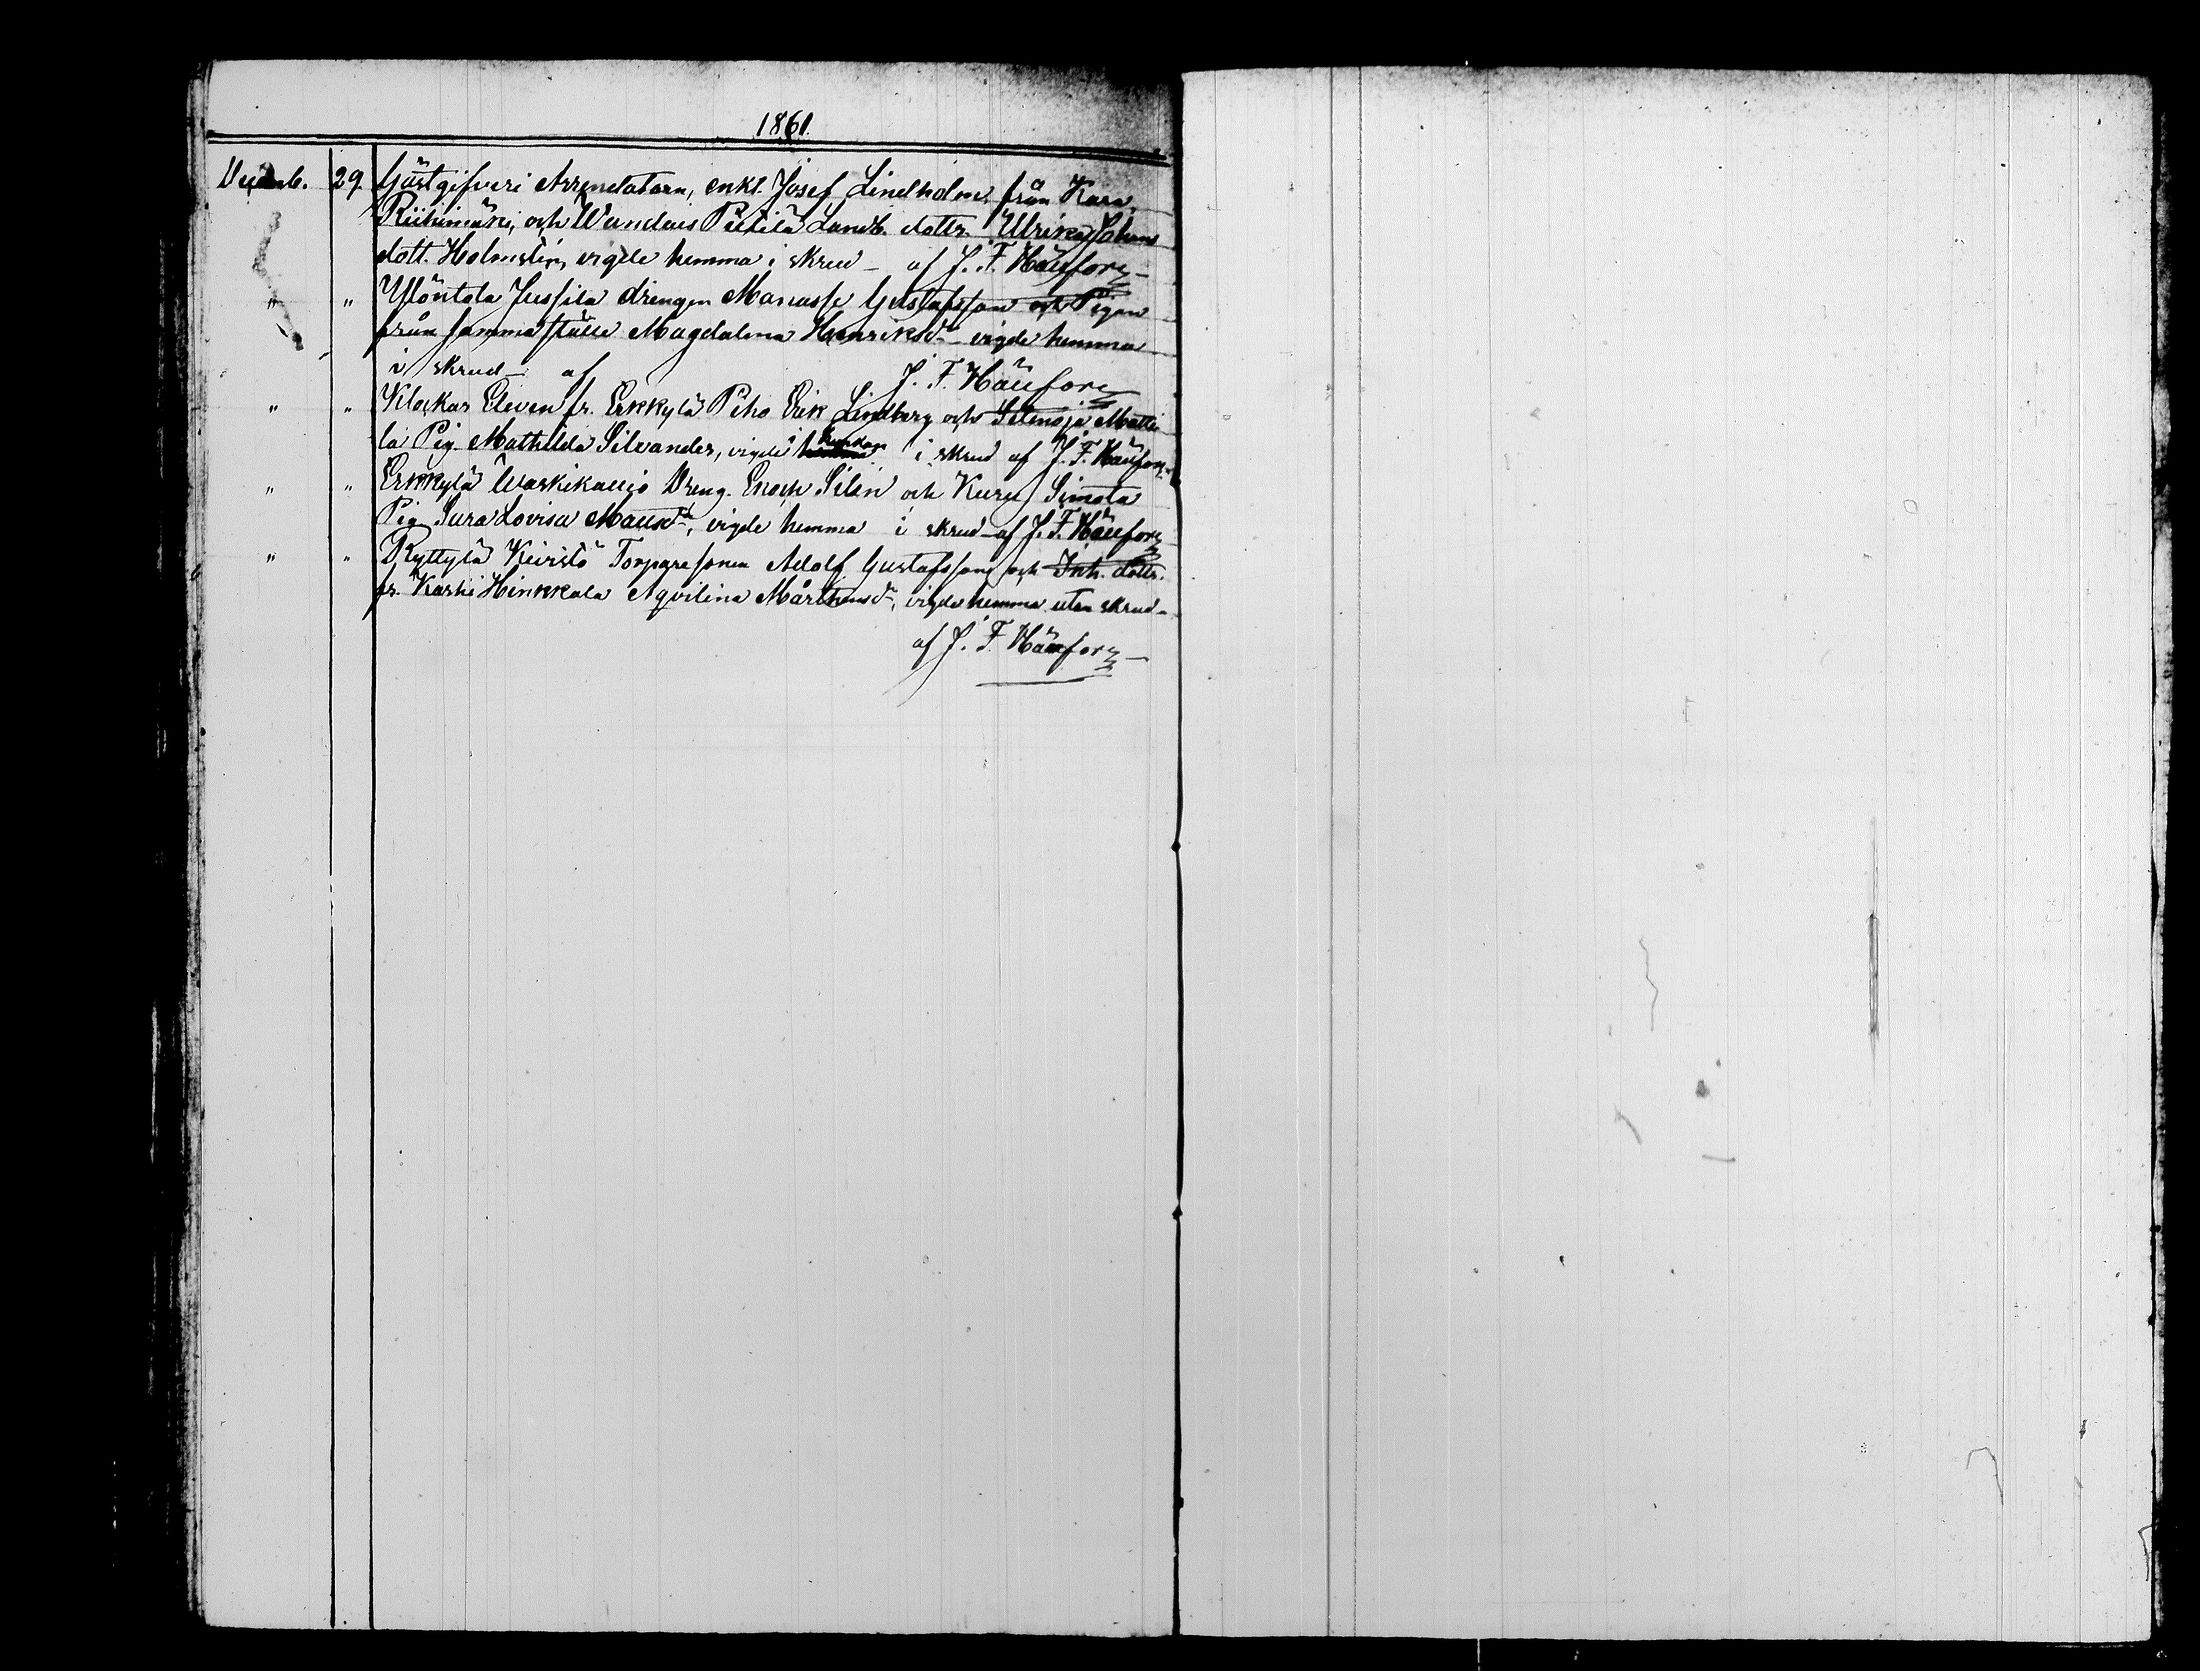 1861.
Decemb. 29. Gästgifveri Arrendatorn, enkl. Josef Lindholm från Kara,
Riihimäki, och Wandaus Pietilä Landb. dottr. Ulrika Johans
dott. Holmstén, vigde hemma i skrud – af J. F. Häufors –
" " Ylöntola Jussila drengen Manasse Gustafsson och Pigan
från samma ställe Magdalena Henriksdr – vigde hemma
i skrud – af J. F. Häufors
" " Klockar Eleven fr. Erkkylä Piho Erik Lindberg och Selänoja Matti
la Pig. Mathilda Silvander, vigde i kyrkan i skrud af J. F. Häufors
" " Erkkylä Waskikallio Dreng. Enoch Silén och Kuru Simola
Pig. Sura Lovisa Mausdr, vigde hemma i skrud – af J. F. Häufors
" " Ryttylä Kivistö Torparesonen Adolf Gustafsson och Inh. dottr.
fr. Karhi Hinkkala Aqvilina Mårthensdr, vigde hemma utan skrud –
af J. F. Häufors –